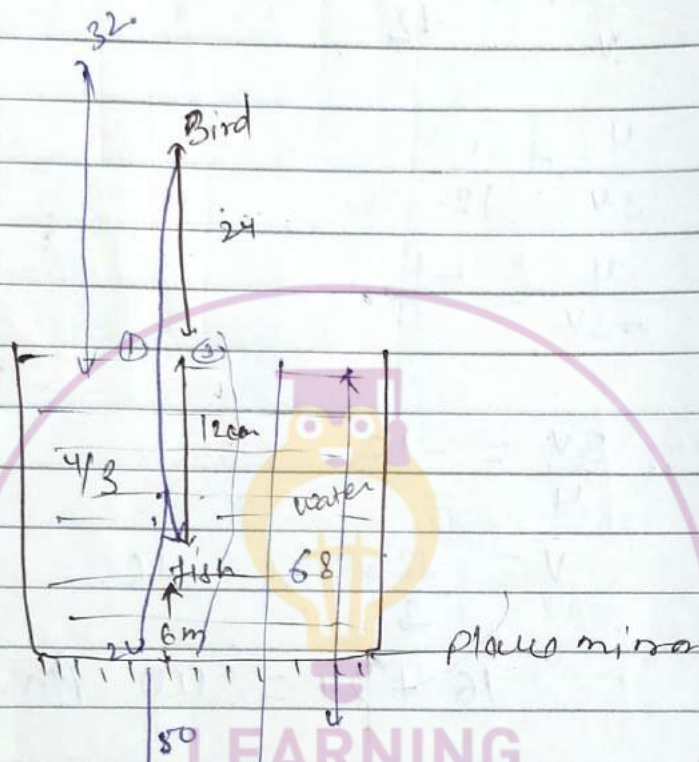 32
Bird
24
① ②
12cm
4/3
water
fish 68
6m
plane mirror
80
LEARNING